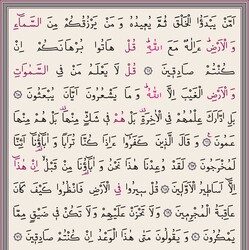 أَمَّن يَبْدَؤُا الْخَلْقَ ثُمَّ يُعِيدُهُ وَ مَن يَرْزُقُكُم مِّنَ السَّمَاءِ
وَ الْأَرْضِ أَءِلَٰهٌ مَّعَ اللَّهِ قُلْ هَاتُوا بُرْهَانَكُمْ إِن
كُنتُمْ صَادِقِينَ ۝ قُل لَّا يَعْلَمُ مَن فِي السَّمَٰوَاتِ
وَ الْأَرْضِ الْغَيْبَ إِلَّا اللَّهُ وَ مَا يَشْعُرُونَ أَيَّانَ يُبْعَثُونَ ۝
بَلِ ادَّارَكَ عِلْمُهُمْ فِي الْآخِرَةِ بَلْ هُمْ فِي شَكٍّ مِّنْهَا بَلْ هُم مِّنْهَا
عَمُونَ ۝ وَ قَالَ الَّذِينَ كَفَرُوا أَءِذَا كُنَّا تُرَابًا وَ آبَاؤُنَا أَئِنَّا
لَمُخْرَجُونَ ۝ لَقَدْ وُعِدْنَا هَٰذَا نَحْنُ وَ آبَاؤُنَا مِن قَبْلُ إِنْ هَٰذَا
إِلَّا أَسَاطِيرُ الْأَوَّلِينَ ۝ قُلْ سِيرُوا فِي الْأَرْضِ فَانظُرُوا كَيْفَ كَانَ
عَاقِبَةُ الْمُجْرِمِينَ ۝ وَ لَا تَحْزَنْ عَلَيْهِمْ وَ لَا تَكُن فِي ضَيْقٍ مِّمَّا
يَمْكُرُونَ ۝ وَ يَقُولُونَ مَتَىٰ هَٰذَا الْوَعْدُ إِن كُنتُمْ صَادِقِينَ